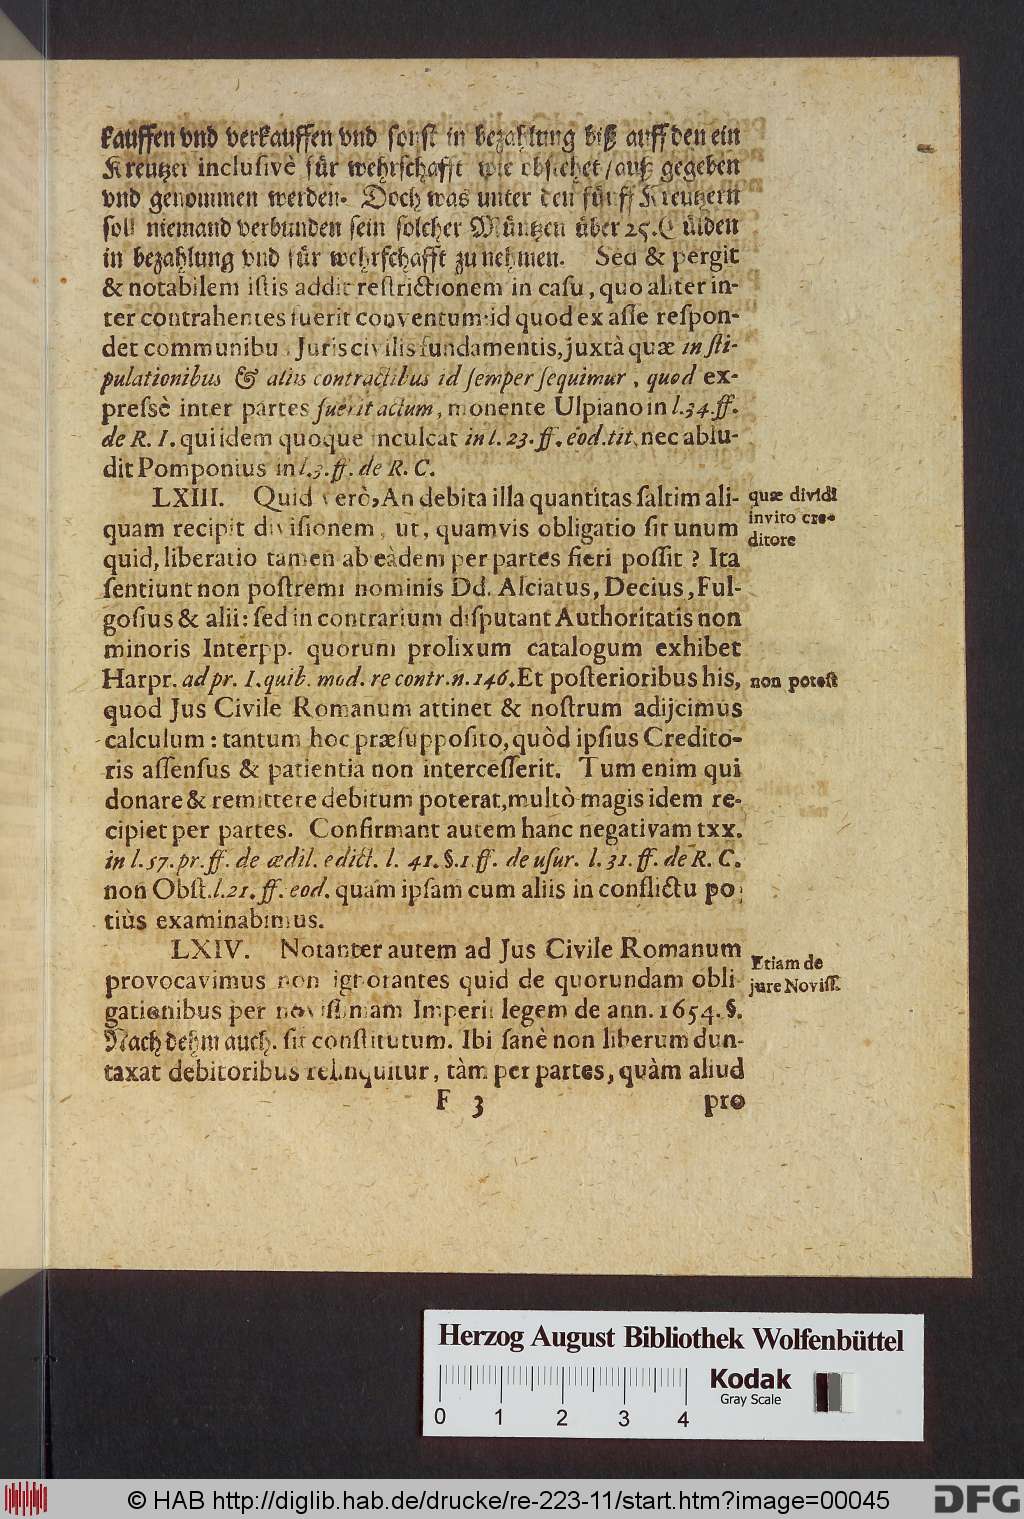 kauffen vnd verkauffen vnd sonst in bezahlung biß auff den ein
Kreutzer inclusivè für wehrschafft wie obstehet/auß gegeben
vnd genommen werden. Doch was unter den fünff Kreutzern
soll niemand verbunden sein solcher Müntzen über 25. Gülden
in bezahlung vnd für wehrschafft zu nehmen. Sed & pergit
& notabilem iſtis addit reſtrictionem in caſu, quo aliter in-
ter contrahentes fuerit conventum; id quod ex aſſe reſpon-
det communibus Juris civilis fundamentis, juxtà quæ in ſti-
pulationibus & aliis contractibus id ſemper ſequimur, quod ex-
preſsè inter partes fuerit actum, monente Ulpiano in l.34.ff.
de R. I. qui idem quoque inculcat in l. 23. ff. eod. tit. nec ablu-
dit Pomponius in l.3.ff. de R. C.
LXIII. Quid verò, An debita illa quantitas ſaltim ali-
quam recipit diviſionem, ut, quamvis obligatio ſit unum
quid, liberatio tamen ab eâdem per partes fieri poſſit ? Ita
ſentiunt non poſtremi nominis Dd. Alciatus, Decius, Ful-
goſius & alii: ſed in contrarium diſputant Authoritatis non
minoris Interpp. quorum prolixum catalogum exhibet
Harpr. ad pr. I. quib. mod. re contr. n. 146. Et poſterioribus his,
quod Jus Civile Romanum attinet & noſtrum adijcimus
calculum: tantum hoc præſuppoſito, quòd ipſius Credito-
ris aſſenſus & patientia non interceſſerit. Tum enim qui
donare & remittere debitum poterat, multò magis idem re-
cipiet per partes. Confirmant autem hanc negativam txx.
in l. 57. pr. ff. de ædil. edict. l. 41. §. 1. ff. de uſur. l. 31. ff. de R. C.
non Obſt. l. 21. ff. eod. quam ipſam cum aliis in conflictu po-
tiùs examinabimus.
LXIV. Notanter autem ad Jus Civile Romanum
provocavimus non ignorantes quid de quorundam obli-
gationibus per noviſſimam Imperii legem de ann. 1654. §.
Nach dehm auch. ſit conſtitutum. Ibi ſanè non liberum dun-
taxat debitoribus relinquitur, tàm per partes, quàm aliud
F 3 pro
quæ dividi
invito cre-
ditore
non poteſt
Etiam de
jure Noviſſ.
Herzog August Bibliothek Wolfenbüttel
0 1 2 3 4
Kodak
Gray Scale
© HAB http://diglib.hab.de/drucke/re-223-11/start.htm?image=00045
DFG